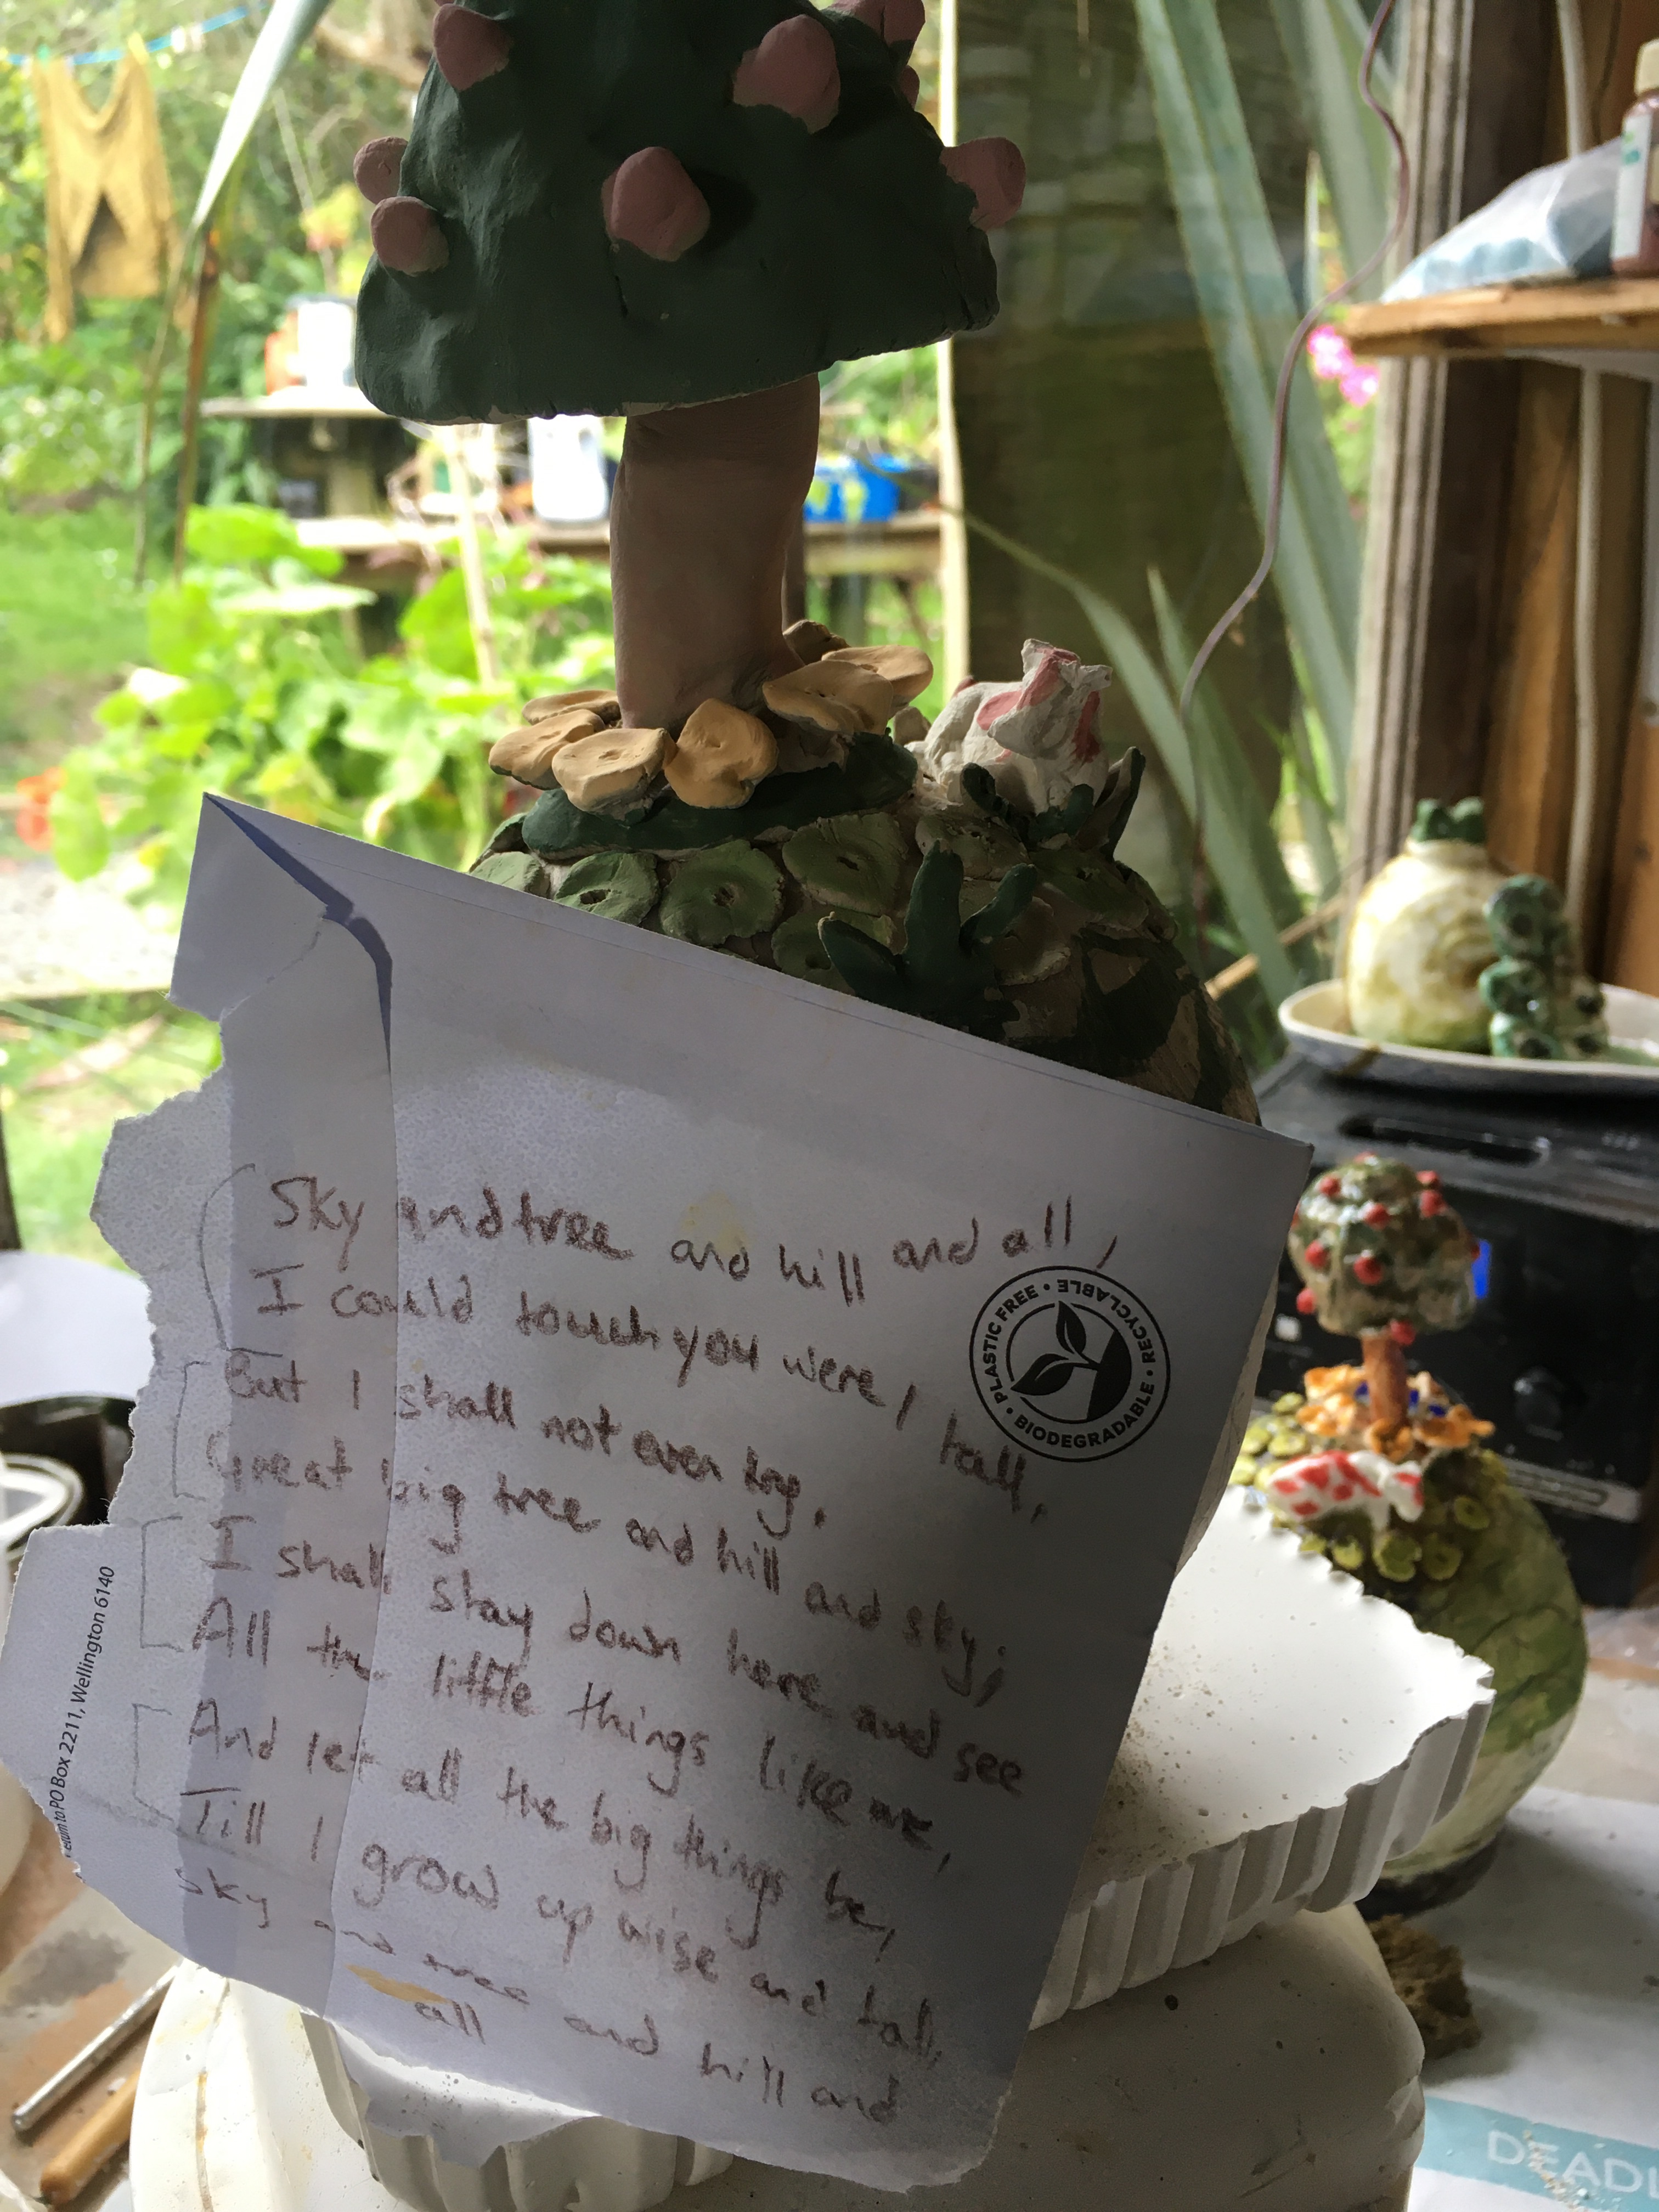 Sky and tree and hill and all,
I could touch you were I tall,
But I shall not even try,
Great big tree and hill and sky;
I shall stay down here and see
All the little things like me,
And let all the big things be,
Till I grow up wise and tall,
Sky and tree and hill and
all
PLASTIC FREE • RECYCLABLE • BIODEGRADABLE •
return to PO Box 2211, Wellington 6140
DEADL